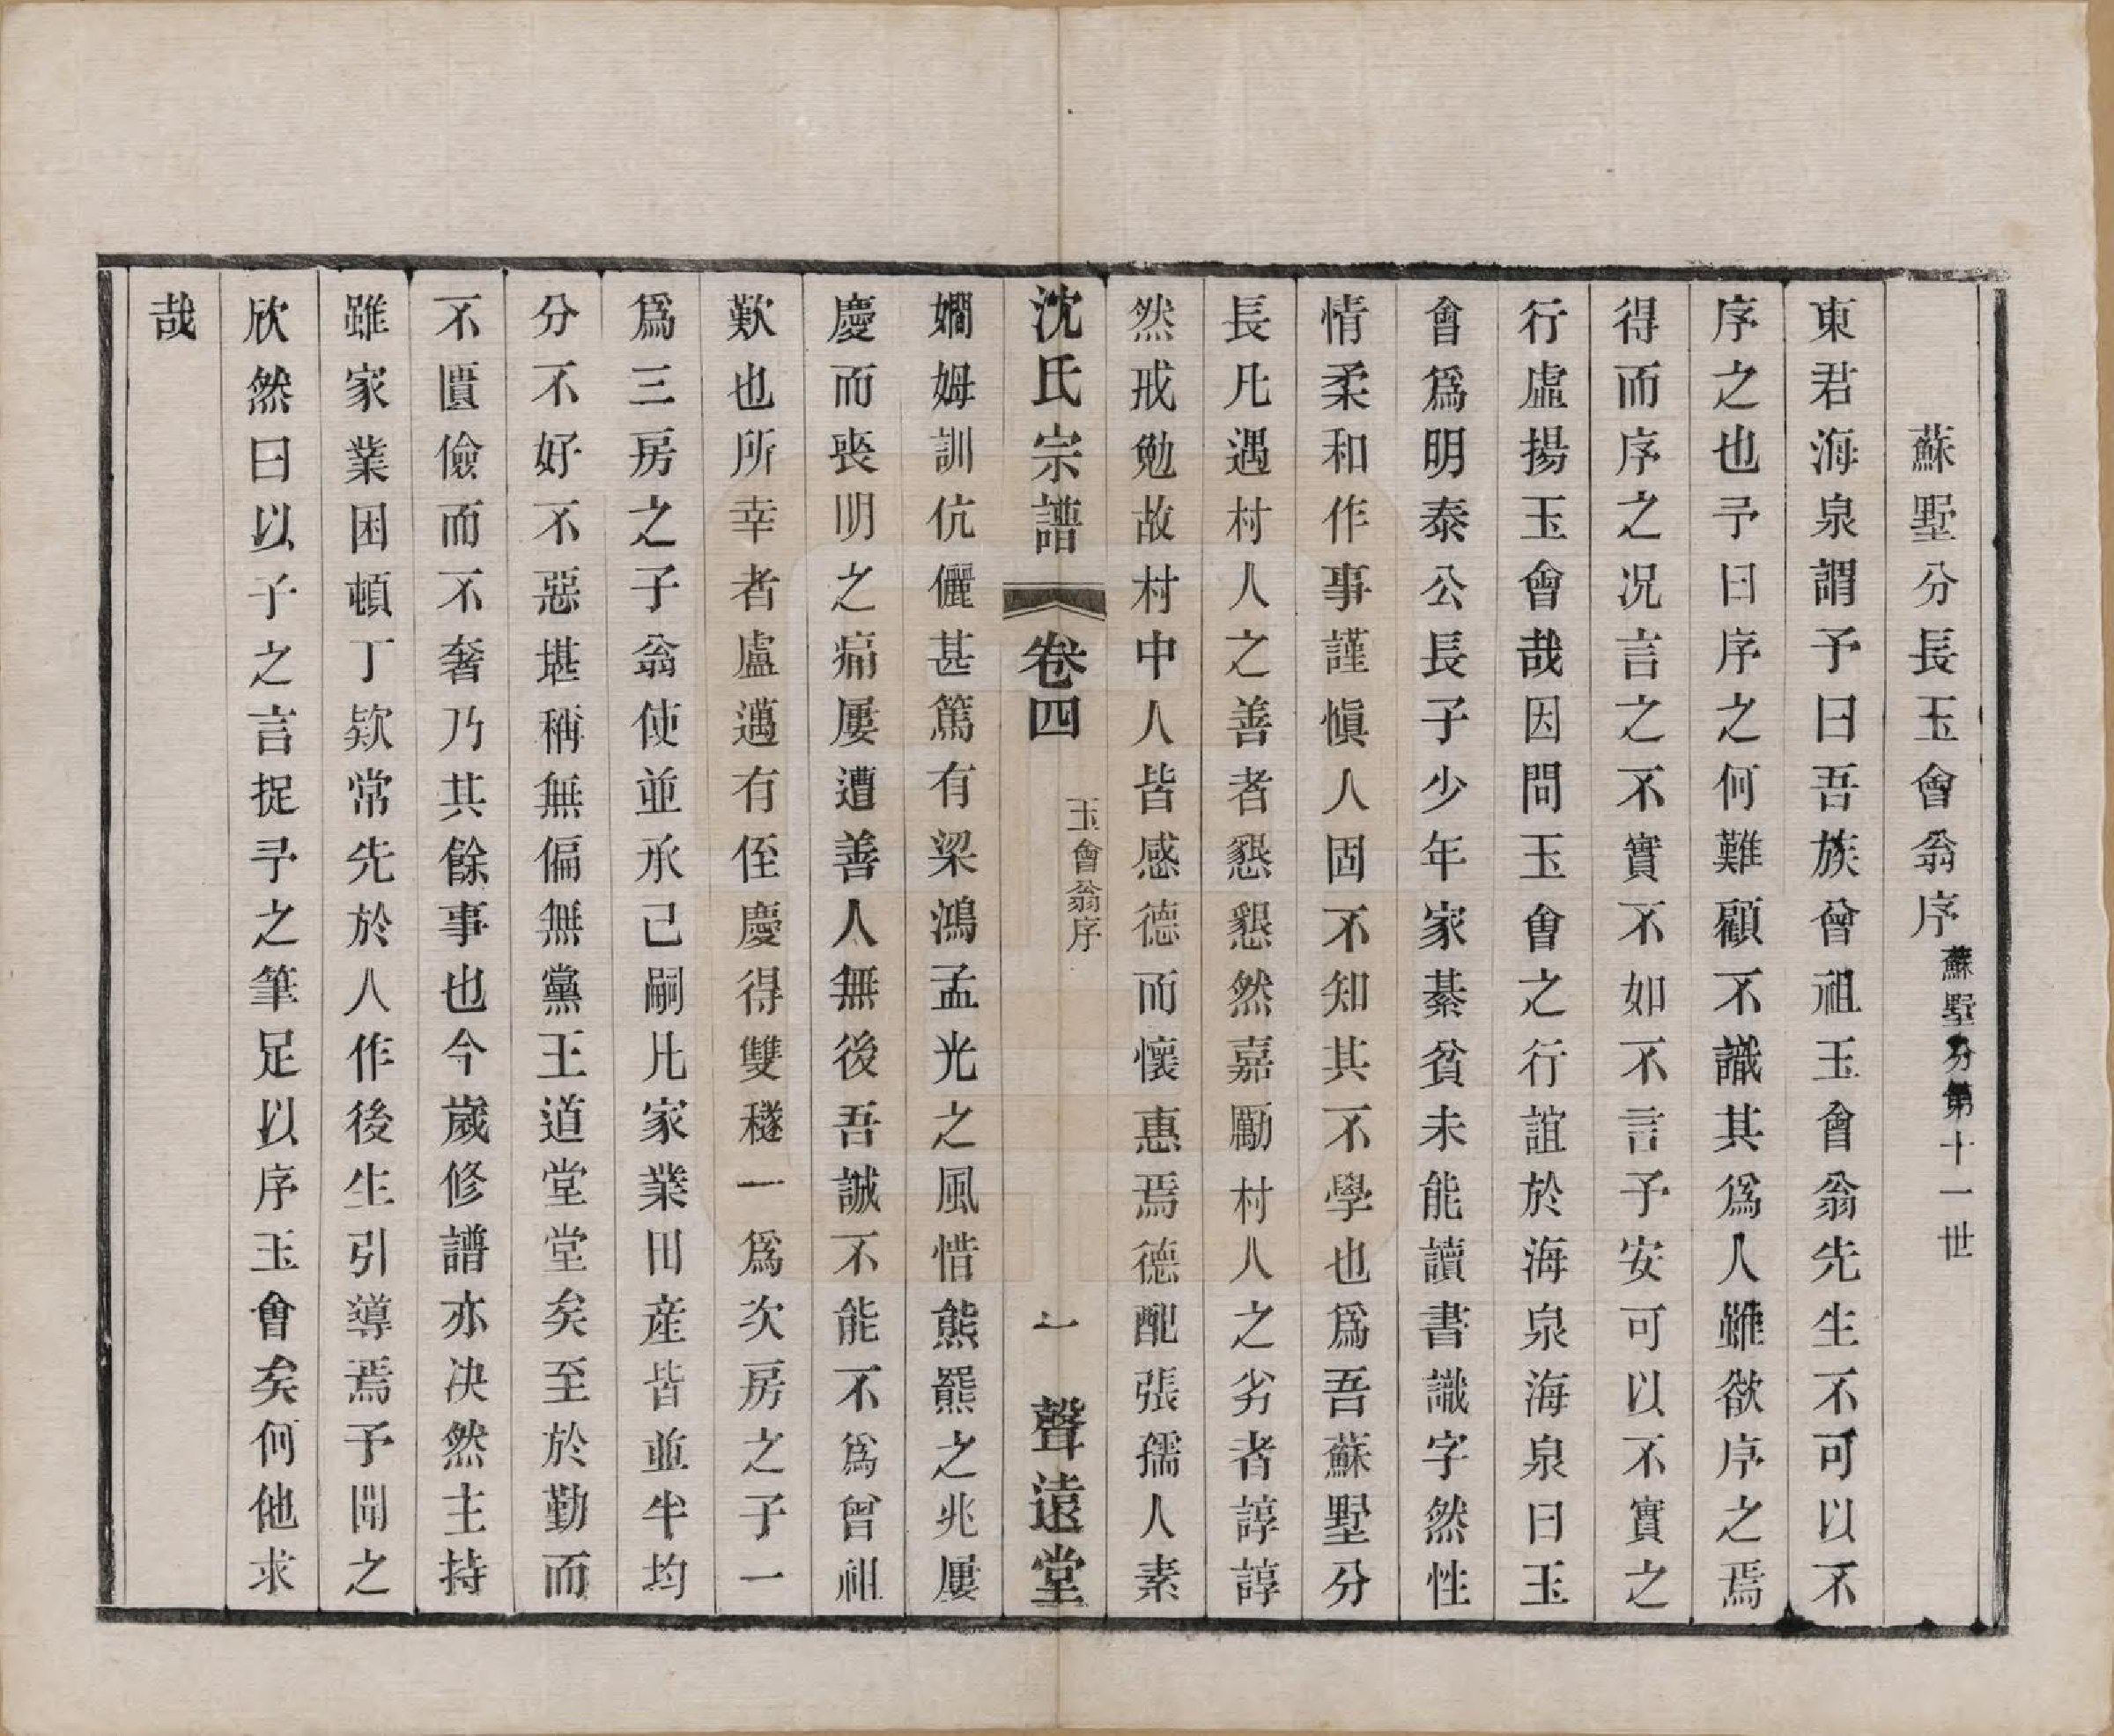 蘇墅分長玉會翁序蘇墅分第十一世
東君海泉謂予曰吾族曾祖玉會翁先生不可以不
序之也予曰序之何難顧不識其爲人雖欲序之焉
得而序之况言之不實不如不言予安可以不實之
行虛揚玉會哉因問玉會之行誼於海泉海泉曰玉
會爲明泰公長子少年家綦貧未能讀書識字然性
情柔和作事謹愼人固不知其不學也爲吾蘇墅分
長凡遇村人之善者懇懇然嘉勵村人之劣者諄諄
然戒勉故村中人皆感德而懷惠焉德配張孺人素
沈氏宗譜 卷四 玉會翁序 一 聲遠堂
嫺姆訓伉儷甚篤有梁鴻孟光之風惜熊羆之兆屢
慶而喪明之痛屢遭善人無後吾誠不能不爲曾祖
歎也所幸者盧邁有侄慶得雙穟一爲次房之子一
爲三房之子翁使並承己嗣凡家業田產皆並半均
分不好不惡堪稱無偏無黨王道堂堂矣至於勤而
不匱儉而不奢乃其餘事也今歲修譜亦决然主持
雖家業困頓丁欵常先於人作後生引導焉予聞之
欣然曰以子之言捉予之筆足以序玉會矣何他求
哉